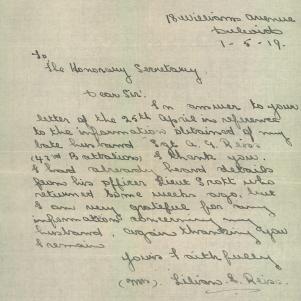 18 Williams Avenue
Dulwich
1-5-19.
To
The Honorary Secretary.
Dear Sir.
In answer to your
letter of the 25th April in reference
to the information obtained of my
late husband Sgt A. G. Reis.
(43rd Battalion) I thank you.
I had already heard details
from his officer Lieut Trott who
returned some weeks ago, but
I am very grateful for any
information concerning my
husband. again thanking you
I remain
Yours Faithfully
(Mrs). Lilian E. Reis.